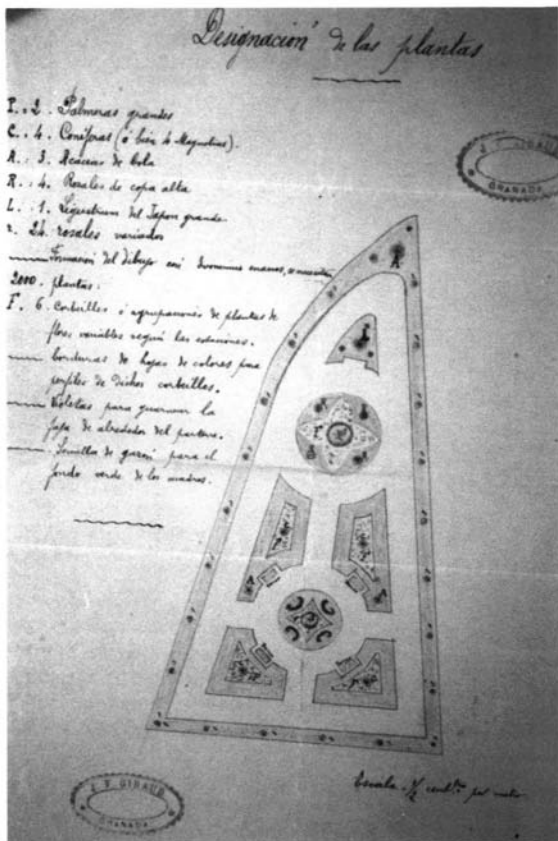 Designacion de las plantas
P. 2. Palmeras grandes
C. 4. Coniferas (ó bien 4 Magnolias).
A. 3. Acacias de bola
R. 4. Rosales de copa alta
L. 1. Ligustrum del Japon grande
r. 24 rosales variados
Formacion del dibujo con evonimus enanos,
2000 plantas.
F. 6. Corbeilles ó agrupaciones de plantas de
flores variables segun las estaciones.
borduras de hojas de colores para
perfiles de dichos corbeilles.
Violetas para guarnecer la
faja de alrededor del parterre.
Semilla de gazon para el
fondo verde de los cuadros.
J. F. GIRAUD
GRANADA
A
Escala ½ cent. por metro
J. F. GIRAUD
GRANADA